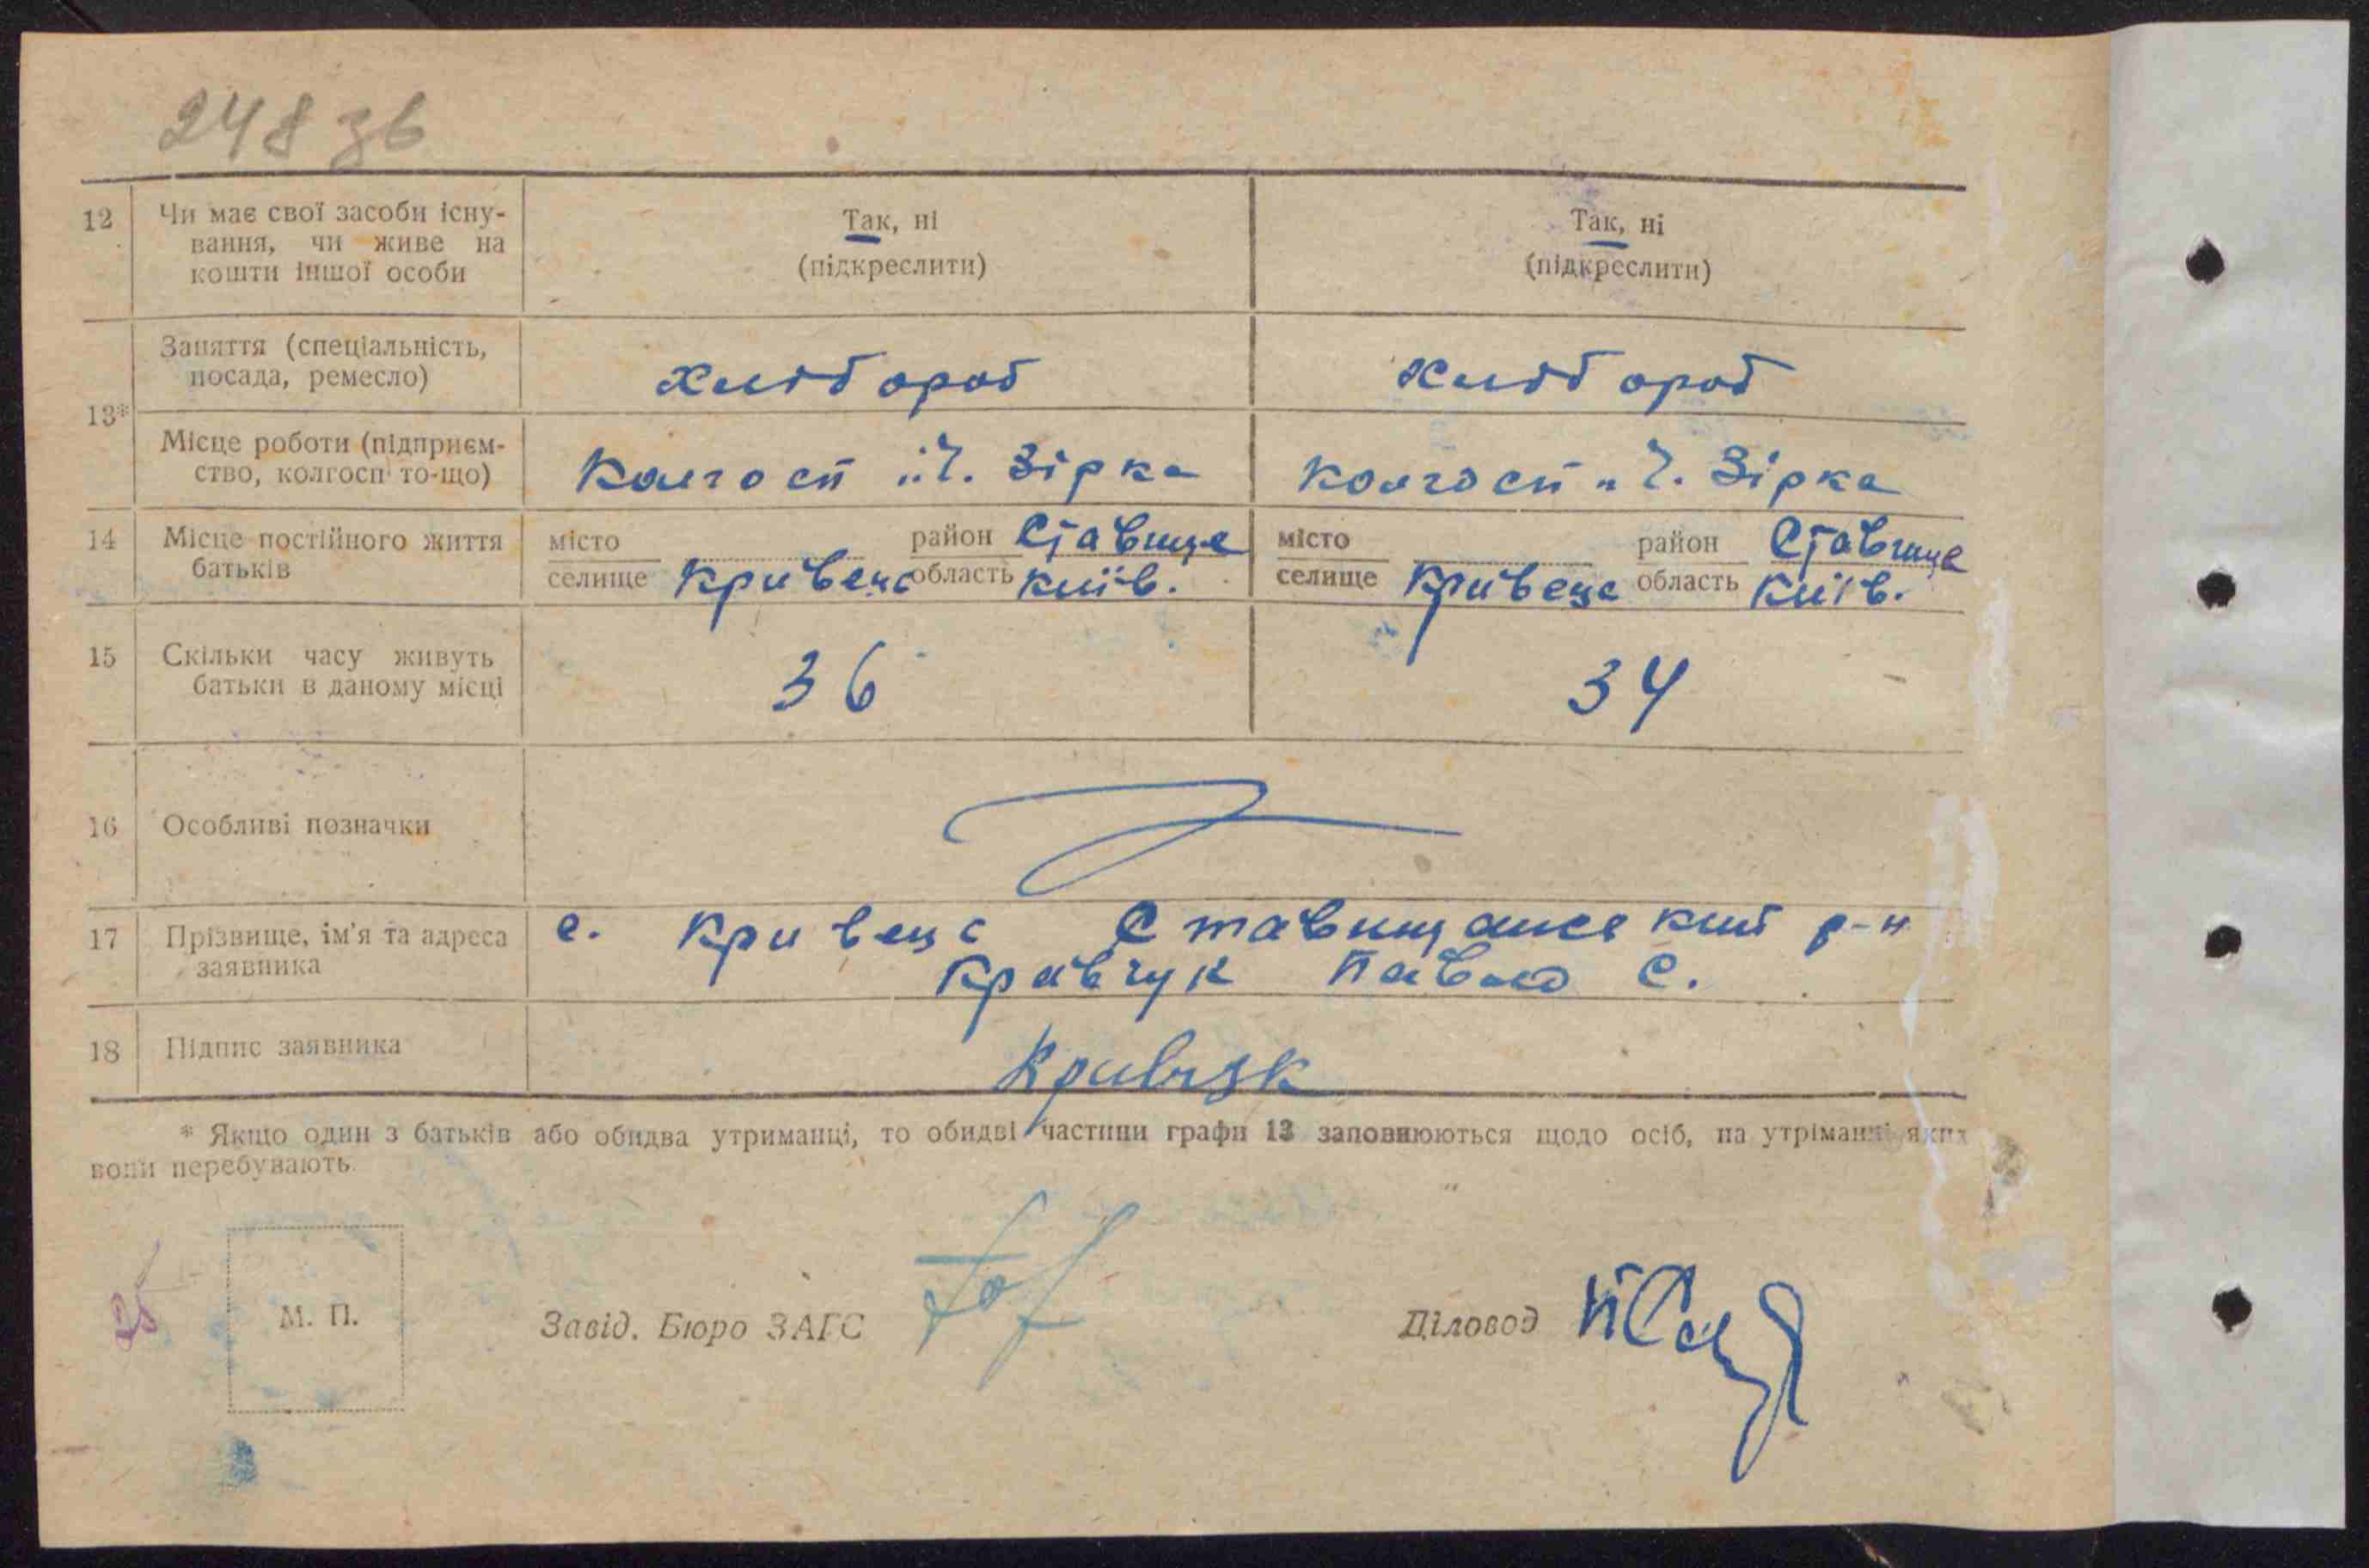 248 зв
12 Чи має свої засоби існу- Так, ні Так, ні
вання, чи живе на (підкреслити) (підкреслити)
кошти іншої особи
Заняття (спеціальність, хлібороб хлібороб
посада, ремесло)
13*
Місце роботи (підприєм- Колгосп „Ч. Зірка Колгосп „Ч. Зірка
ство, колгосп то-що)
14 Місце постійного життя місто район Ставище місто район Ставище
батьків селище Кривець область Київ. селище Кривець область Київ.
15 Скільки часу живуть 36 34
батьки в даному місці
16 Особливі позначки
17 Прізвище, ім'я та адреса с. Кривець Ставищанський р-н
заявника Кравчук Павло С.
18 Підпис заявника Кравчук
* Якщо один з батьків або обидва утриманці, то обидві частини графи 13 заповнюються щодо осіб, на утріманні яких
вони перебувають.
25
М. П. Завід. Бюро ЗАГС Діловод